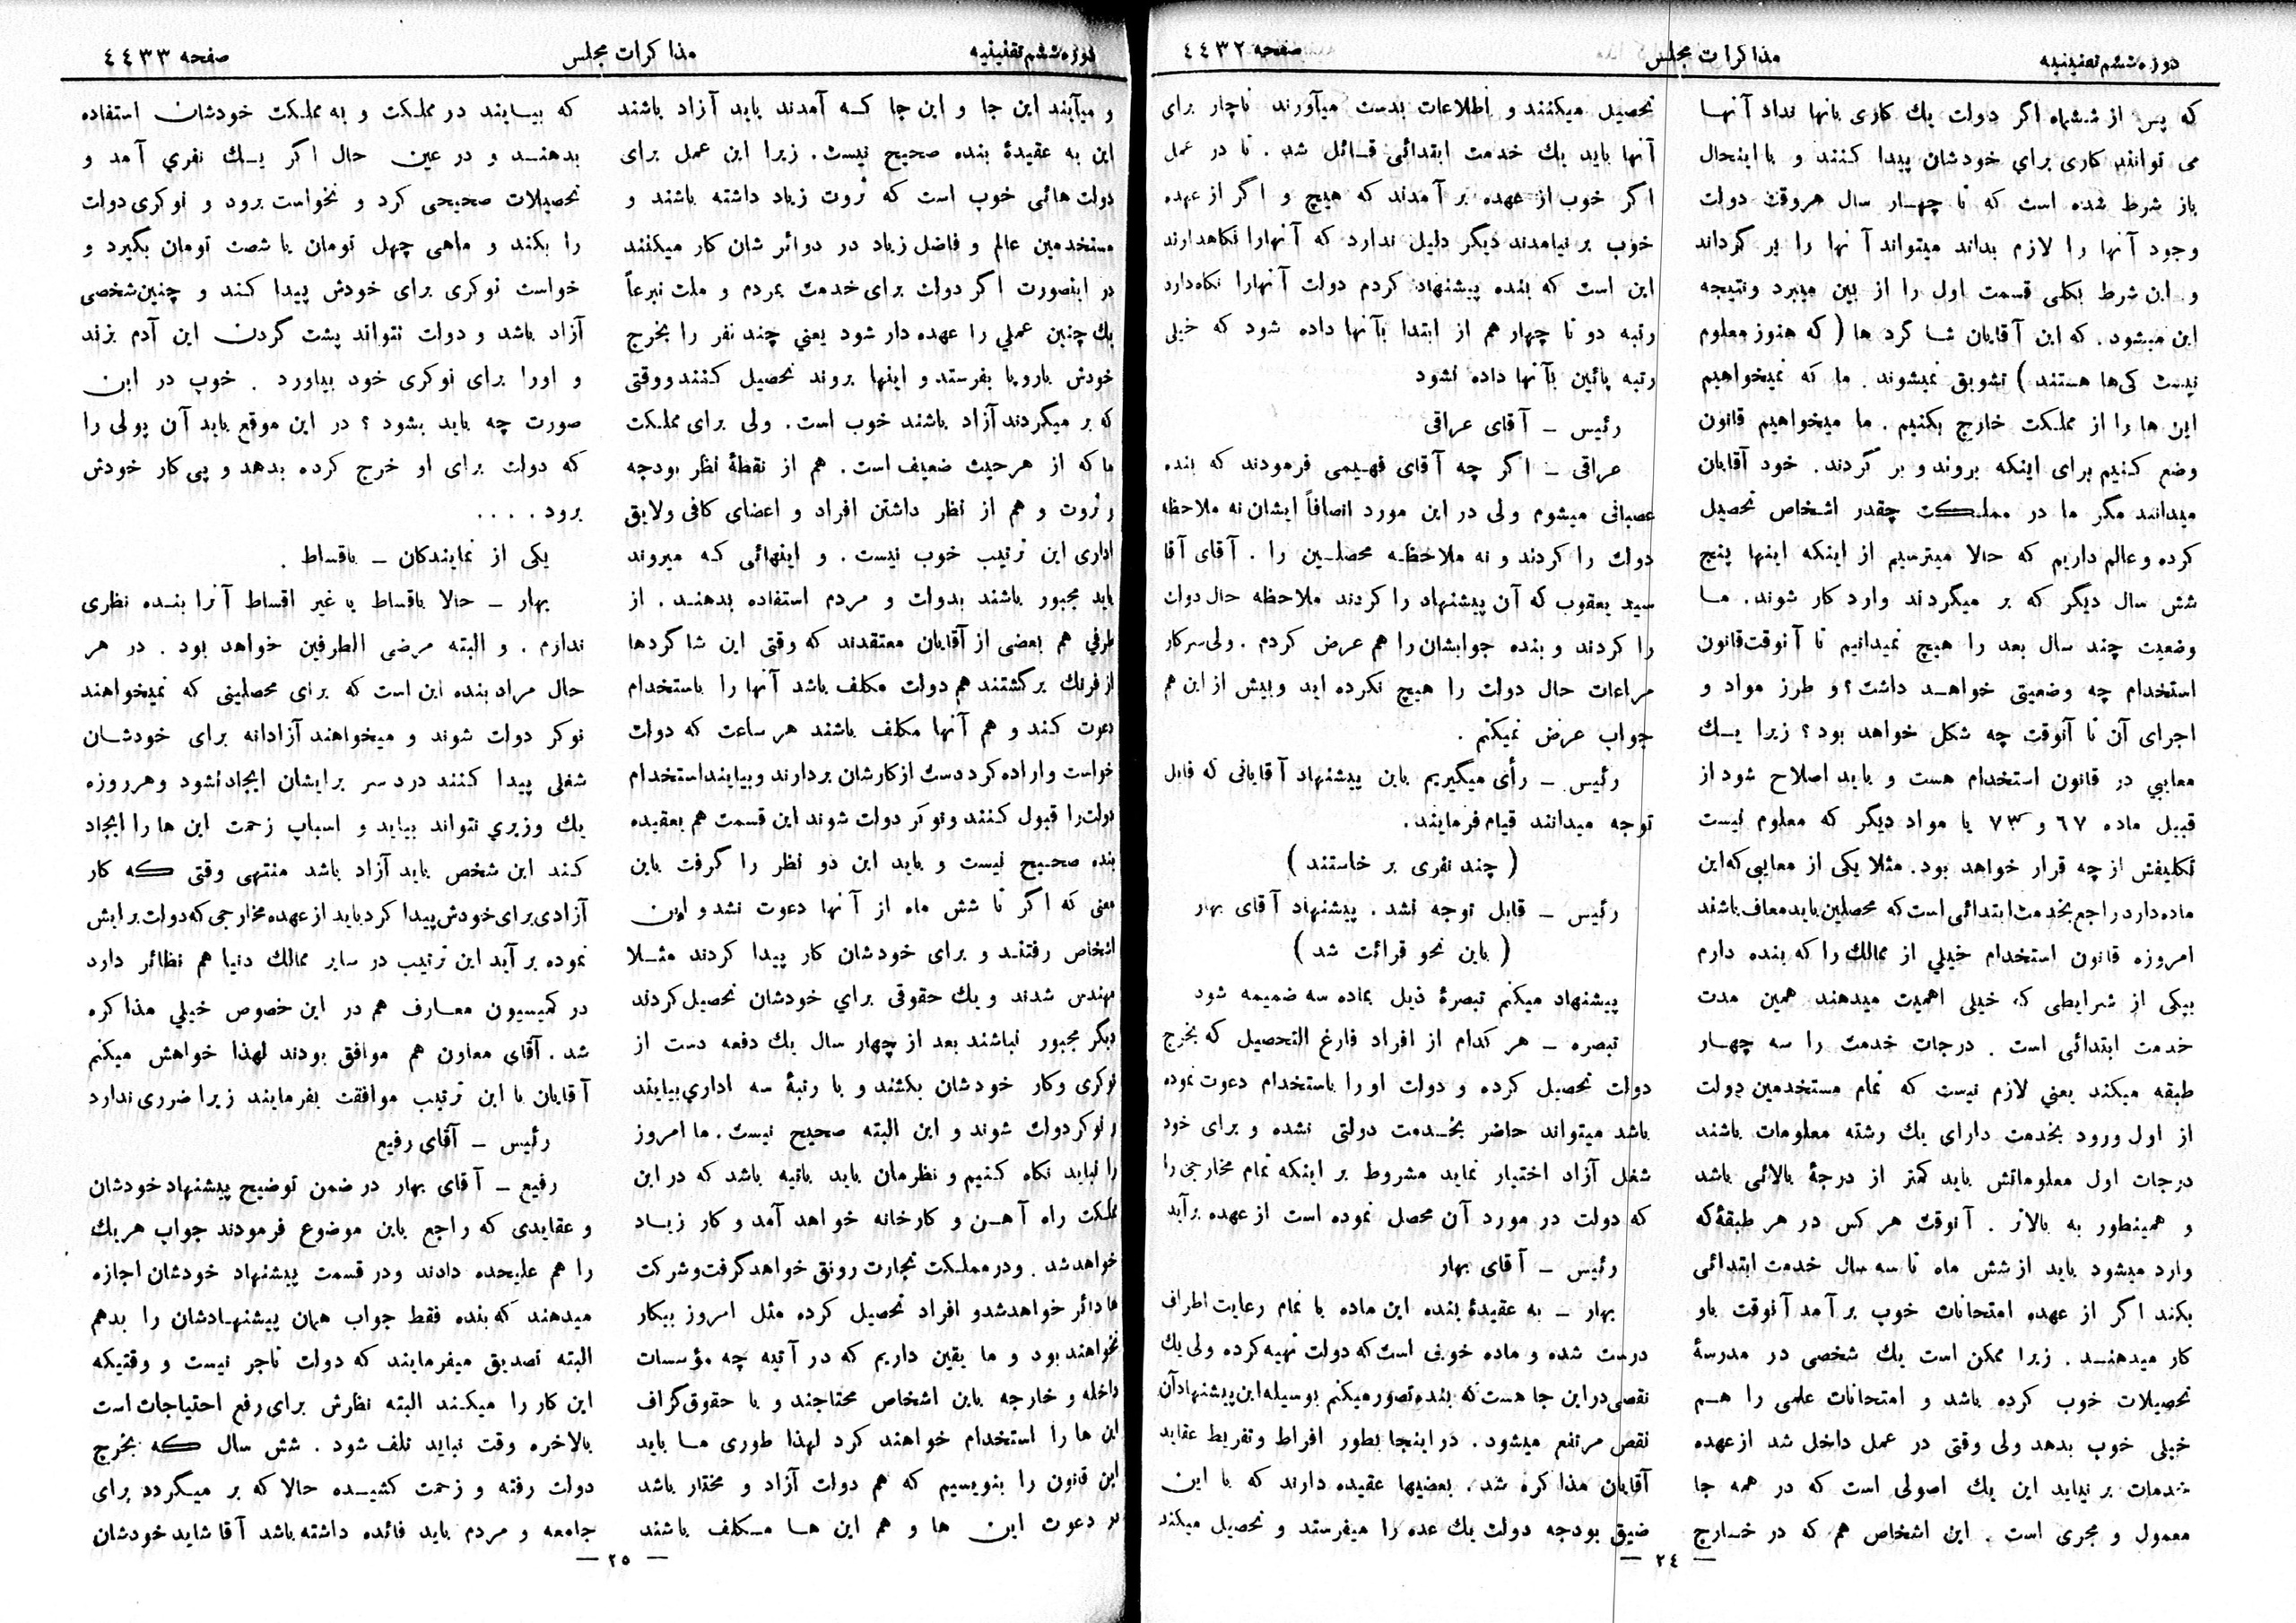 دوره ششم تقنینیه
مذاکرات مجلس
صفحه ٤٤٣٢
که پس از ششماه اگر دولت یك کاری بانها نداد آنهـا
می توانند کاری برای خودشان پیدا کـنند و بااینحال
باز شرط شده است که تا چهـار سال هروقت دولت
وجود آنها را لازم بداند میتواند آنها را بر گرداند
و این شرط بکلی قسمت اول را از بین میبرد ونتیجه
این میشود. که این آقایان شـا گرد ها ( که هنوز معلوم
نیست کی‌ها هستند ) تشویق نمیشوند. ما که نمیخواهیم
این ها را از مملـکت خارج بکنیم. ما میخواهیم قانون
وضع کـنیم برای اینکه بروند و بر گردند. خود آقایان
میدانند مگر ما در مملـکت چقدر اشـخاص تحصیل
کرده و عالم داریم که حالا میترسیم از اینکه اینها پنج
شش سال دیگر که بر میگردند وارد کار شوند. مـا
وضعیت چند سال بعد را هیچ نمیدانیم تا آنوقت قانون
استخدام چه وضعیتی خواهـد داشت؟ و طرز مواد و
اجرای آن تا آنوقت چه شکل خواهد بود؟ زیرا یـك
معایبی در قانون استخدام هست و باید اصلاح شود از
قبیل ماده ٦٧ و ٧٣ یا مواد دیگر که معلوم نیست
تکلیفش از چه قرار خواهد بود. مثلا یکی از معایبی که این
ماده دارد راجع بخدمت ابتدائی است که محصلین باید معاف باشند
امروزه قانون استخدام خیلي از ممالك را که بنده دارم
بیکی از شرایطی که خیلی اهمیت میدهند همین مدت
خدمت ابتدائی است. درجات خدمت را سه چهـار
طبقه میکند یعني لازم نیست که تمام مستخدمین دولت
از اول ورود بخدمت دارای یك رشته معلومات باشند
درجات اول معلوماتش باید کمتر از درجهٔ بالائی باشد
و همینطور به بالاتر. آنوقت هر کس در هر طبقهٔ که
وارد میشود باید از شش ماه تا سه سال خدمت ابتدائی
بکند اگر از عهده امتحانات خوب بر آمد آنوقت باو
کار میدهنـد. زیرا ممکن است یك شخصی در مدرسهٔ
تحصیلات خوب کرده باشد و امتحانات علمی را هـم
خیلی خوب بدهد ولی وقتی در عمل داخل شد از عهده
خدمات بر نیاید این یك اصولی است که در همه جا
معمول و مجری است. این اشخاص هم که در خـارج
تحصیل میکنند و اطلاعات بدست میآورند ناچار برای
آنها باید یك خدمت ابتدائی قـائل شد. تا در عمل
اگر خوب از عهده بر آمدند که هیچ و اگر از عهده
خوب بر نیامدند دیگر دلیل ندارد که آنهارا نگاهدارند
این است که بنده پیشنهاد کردم دولت آنهارا نگاه دارد
رتبه دو تا چهار هم از ابتدا بآنها داده شود که خیلی
رتبه پائین بآنها داده نشود
رئیس ـ آقای عراقی
عراقی ـ اگر چه آقای فهـیمی فرمودند که بنده
عصبانی میشوم ولی در این مورد انصافاً ایشان نه ملاحظه
دولت را کردند و نه ملاحظـه محصلـین را. آقای آقا
سید یعقوب که آن پیشنهاد را کردند ملاحظه حال دولت
را کردند و بنده جوابشان را هم عرض کردم. ولی سرکار
مراعات حال دولت را هیچ نکرده اید و بیش از این هم
جواب عرض نمیکنم.
رئیس ـ رأی میگیریم باین پیشنهاد آقایانی که قابل
توجه میدانند قیام فرمایند.
( چند نفری بر خاستند )
رئیس ـ قابل توجه نشد. پیشنهاد آقای بهار
( باین نحو قرائت شد )
پیشنهاد میکنم تبصرهٔ ذیل بماده سه ضمیمه شود
تبصره ـ هر کدام از افراد فارغ التحصیل که بخرج
دولت تحصیل کرده و دولت او را باستخدام دعوت نموده
باشد میتواند حاضر بخـدمت دولتی نشده و برای خود
شغل آزاد اختیار نماید مشروط بر اینکه تمام مخارجی را
که دولت در مورد آن محصل نموده است از عهده برآید
رئیس ـ آقای بهار
بهار ـ به عقیدهٔ بنده این ماده با تمام رعایت اطراف
درست شده و ماده خوبی است که دولت تهیه کرده ولی یك
نقصی در این جا هست که بنده تصور میکنم بوسیله این پیشنهاد آن
نقص مرتفع میشود. در اینجا بطور افراط و تفریط عقاید
آقایان مذاکره شد. بعضیها عقیده دارند که با این
ضیق بودجه دولت یك عده را میفرستد و تحصیل میکند
ـ ٢٤ ـ
دوره ششم تقنینیه
مذاکرات مجلس
صفحه ٤٤٣٣
و میآیند این جا و این جا کـه آمدند باید آزاد باشند
این به عقیدهٔ بنده صحیح نیست. زیرا این عمل برای
دولت هائی خوب است که ثروت زیاد داشته باشند و
مستخدمین عالم و فاضل زیاد در دوائر شان کار میکنند
در اینصورت اگر دولت برای خدمت بمردم و ملت تبرعاً
یك چنین عملي را عهده دار شود یعني چند نفر را بخرج
خودش باروپا بفرستد و اینها بروند تحصیل کنند و وقتی
که بر میگردند آزاد باشند خوب است. ولی برای مملـکت
ما که از هرحیث ضعیف است. هم از نقطهٔ نظر بودجه
و ثروت و هم از نظر داشتن افراد و اعضای کافی ولایق
اداری این ترتیب خوب نیست. و اینهائی کـه میروند
باید مجبور باشند بدولت و مردم استفاده بدهنـد. از
طرفي هم بعضی از آقایان معتقدند که وقتی این شاگردها
از فرنك برگشتند هم دولت مکلف باشد آنها را باستخدام
دعوت کند و هم آنها مکلف باشند هر ساعت که دولت
خواست و اراده کرد دست از کارشان بردارند و بیایند استخدام
دولت را قبول کـنند و نوکر دولت شوند این قسمت هم بعقیده
بنده صحیـح نیست و باید این دو نظر را گرفت باین
معنی که اگر تا شش ماه از آنها دعوت نشد و این
اشخاص رفتنـد و برای خودشان کار پیدا کردند مثـلا
مهندس شدند و یك حقوقی براي خودشان تحصیل کردند
دیگر مجبور نباشند بعد از چهار سال یك دفعه دست از
نوکری و کار خودشان بکشند و با رتبهٔ سه اداري بیایند
و نوکر دولت شوند و این البته صحیح نیست. ما امروز
را نباید نگاه کـنیم و نظرمان باید بآتیه باشد که در این
مملکت راه آهـن و کارخانه خواهد آمد و کار زیـاد
خواهد شد. و در مملـکت تجارت رونق خواهد گرفت و شرکت
ها دائر خواهد شد و افراد تحصیل کرده مثل امروز بیکار
نخواهند بود و ما یقین داریم که در آتیه چه مؤسسات
داخله و خارجه باین اشخاص محتاجند و با حقوق گزاف
این ها را استخدام خواهند کرد لهذا طوری مـا باید
این قانون را بنویسیم که هم دولت آزاد و مختار باشد
در دعوت این ها و هم این هـا مـکلف باشند
که بیـایند در مملـکت و به مملـکت خودشان استفاده
بدهنـد و در عین حال اگر یـك نفري آمد و
تحصیلات صحیحی کرد و نخواست برود و نوکری دولت
را بکند و ماهی چهل تومان یا شصت تومان بگیرد و
خواست نوکری برای خودش پیدا کـند و چنین شخصی
آزاد باشد و دولت نتواند پشت گردن این آدم بزند
و اورا برای نوکری خود بیاورد. خوب در این
صورت چه باید بشود؟ در این موقع باید آن پولی را
که دولت برای او خرج کرده بدهد و پی کار خودش
برود....
یکی از نمایندکان ـ باقساط.
بهار ـ حالا باقساط یا غیر اقساط آنرا بنـده نظری
ندارم. و البته مرضی الطرفین خواهد بود. در هر
حال مراد بنده این است که برای محصلینی که نمیخواهند
نوکر دولت شوند و میخواهند آزادانه برای خودشـان
شغلی پیدا کـنند دردسر برایشان ایجاد نشود و هرروزه
یك وزیري نتواند بیاید و اسباب زحمت این ها را ایجاد
کـند این شخص باید آزاد باشد منتهی وقتی کـه کار
آزادی برای خودش پیدا کرد باید از عهده مخارجی که دولت برایش
نموده بر آید این ترتیب در سایر ممالك دنیا هم نظائر دارد
در کمیسیون معـارف هم در این خصوص خیلي مذاکره
شد. آقای معاون هم موافق بودند لهذا خواهش میکنم
آقایان با این ترتیب موافقت بفرمایند زیرا ضرری ندارد
رئیس ـ آقای رفیع
رفیع ـ آقای بهار در ضمن توضیح پیشنهاد خودشان
و عقایدی که راجع باین موضوع فرمودند جواب هریك
را هم علیحده دادند ودر قسمت پیشنهاد خودشان اجازه
میدهند که بنده فقط جواب همان پیشنهـادشان را بدهم
البته تصدیق میفرمایند که دولت تاجر نیست و وقتیکه
این کار را میکـند البته نظارش برای رفع احتیاجات است
بالاخره وقت نباید تلف شود. شش سال کـه بخرج
دولت رفته و زحمت کشیـده حالا که بر میـگردد برای
جامعه و مردم باید فائده داشته باشد آقا شاید خودشان
ـ ٢٥ ـ